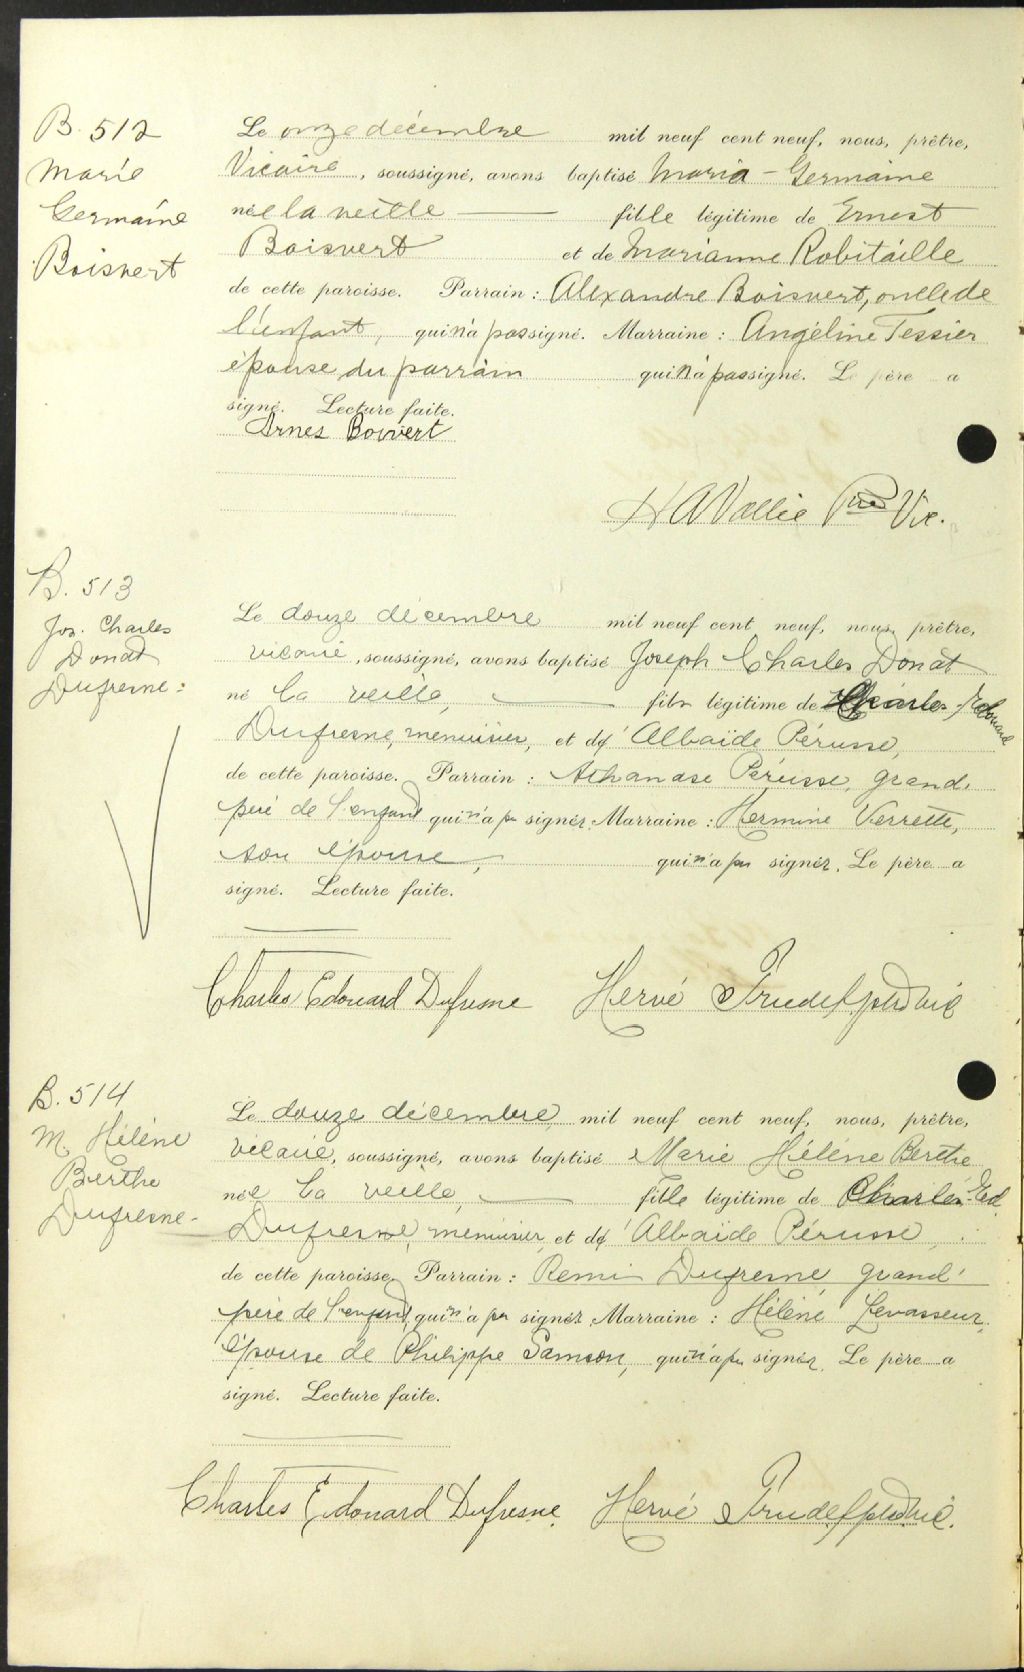 B. 512
Marie
Germaine
Boisvert
Le onze décembre mil neuf cent neuf, nous, prêtre,
Vicaire, soussigné, avons baptisé Maria-Germaine
née la veille fille légitime de Ernest
Boisvert et de Marianne Robitaille
de cette paroisse. Parrain : Alexandre Boisvert, oncle de
l'enfant, qui n'a pas signé. Marraine : Angéline Tessier
épouse du parrain qui n'a pas signé. Le père a
signé. Lecture faite.
Arnes Boivert
H A Vallée Ptre Vic.
B. 513
Jos. Charles
Donat
Dufresne:
Le douze décembre mil neuf cent neuf, nous, prêtre,
vicaire, soussigné, avons baptisé Joseph Charles Donat
né la veille, fils légitime de Charles-Edouard
Dufresne, menuisier, et d'Albaïde Pérusse,
de cette paroisse. Parrain : Athanase Pérusse, grand-
père de l'enfant qui n'a pu signer. Marraine : Hermine Verrette,
son épouse, qui n'a pu signer. Le père a
signé. Lecture faite.
Charles Edouard Dufresne Hervé Trudel ptre vic
B. 514
M. Hélène
Berthe
Dufresne-
Le douze décembre, mil neuf cent neuf, nous, prêtre,
vicaire, soussigné, avons baptisé Marie Hélène Berthe
née la veille, fille légitime de Charles-Ed.
Dufresne, menuisier, et d'Albaïde Pérusse,
de cette paroisse. Parrain : Remi Dufresne grand-
père de l'enfant, qui n'a pu signer. Marraine : Hélène Levasseur,
épouse de Philippe Samson, qui n'a pu signer. Le père a
signé. Lecture faite.
Charles Edouard Dufresne. Hervé Trudel ptre vic.